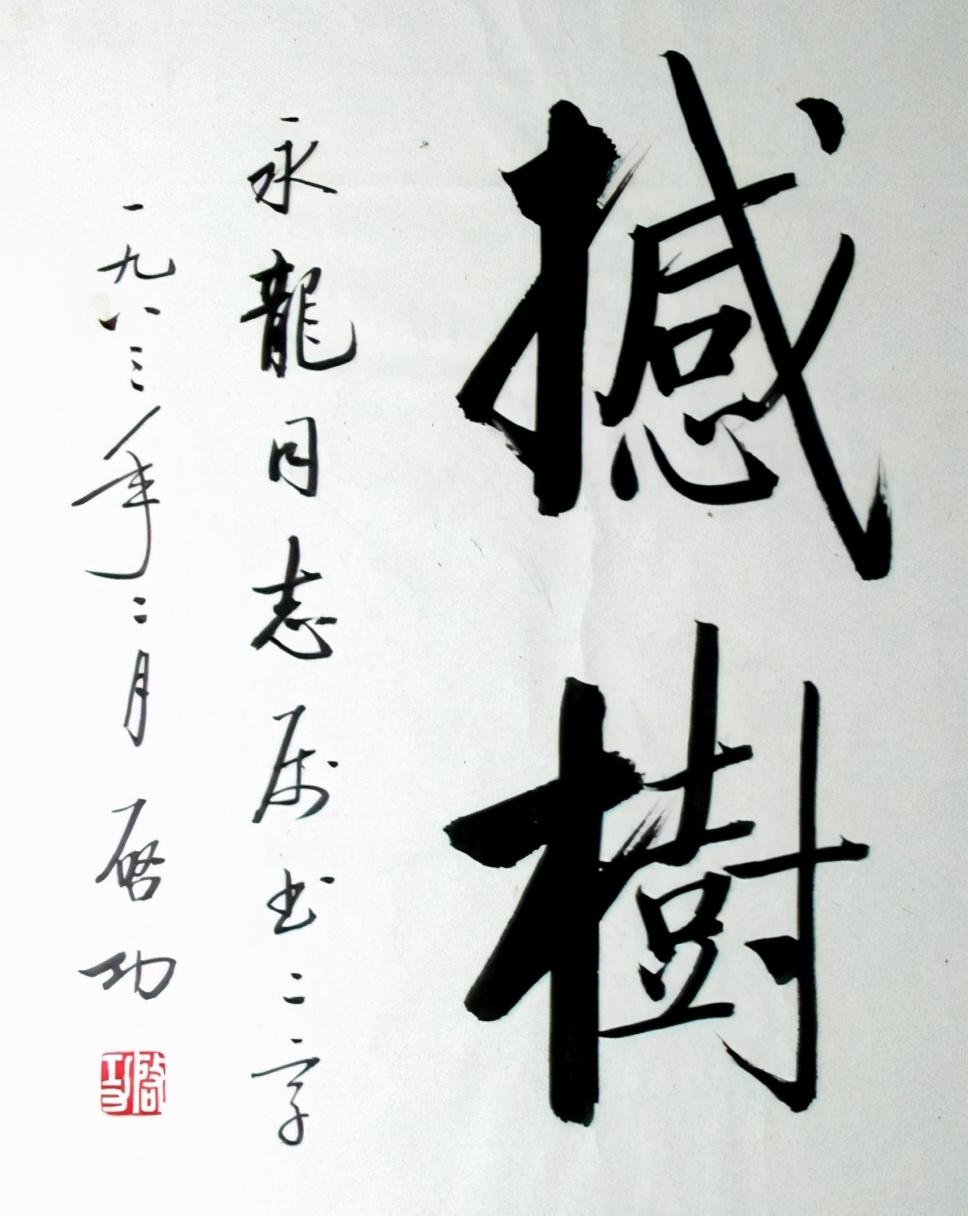 撼樹
永龍同志属书二字
一九八三年二月 启功
启功